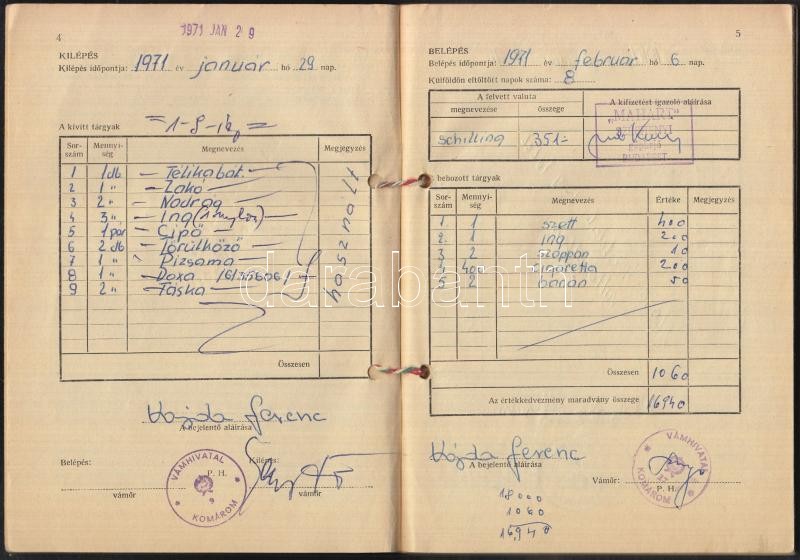 1971 JAN 29
4
KILÉPÉS
Kilépés időpontja: 1971 év január hó 29 nap.
A kivitt tárgyak
Sor-szám Mennyi-ség Megnevezés Megjegyzés
1 1 db – Télikabát
2 1 " – Zakó
3 2 " – Nadrág
4 3 " – Ing (1 nylon)
5 1 pár – Cipő
6 2 db – Törülköző
7 1 " – Pizsama
8 1 " – Doxa
9 2 " – Táska
használt
Összesen
Vajda Ferenc
A bejelentő aláírása
Belépés: Kilépés:
P. H.
vámőr vámőr
VÁMHIVATAL
KOMÁROM
5
BELÉPÉS
Belépés időpontja: 1971 év február hó 6 nap.
Külföldön eltöltött napok száma: 8
A felvett valuta A kifizetést igazoló aláírása
megnevezése összege
schilling 351.-
"MAHART"
BUDAPEST
A behozott tárgyak
Sor-szám Mennyi-ség Megnevezés Értéke Megjegyzés
1. 1 szett 400
2. 1 ing 200
3 2 szappan 10
4 400 cigaretta 200
5 2 banán 50
Összesen 1060
Az értékkedvezmény maradvány összege 16940
Vajda Ferenc
A bejelentő aláírása
Vámőr:
P. H.
VÁMHIVATAL
KOMÁROM
18000
1060
16,940
darabanth